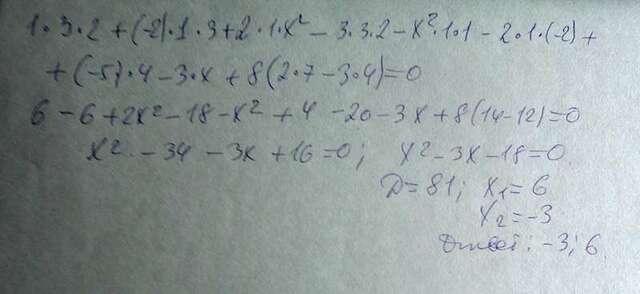 1·3·2+(-2)·1·3+2·1·x²-3·3·2-x²·1·1-2·1·(-2)+
+(-5)·4-3·x+8(2·7-3·4)=0
6-6+2x²-18-x²+4-20-3x+8(14-12)=0
x²-34-3x+16=0; x²-3x-18=0
D=81; x₁=6
x₂=-3
Ответ: -3; 6.